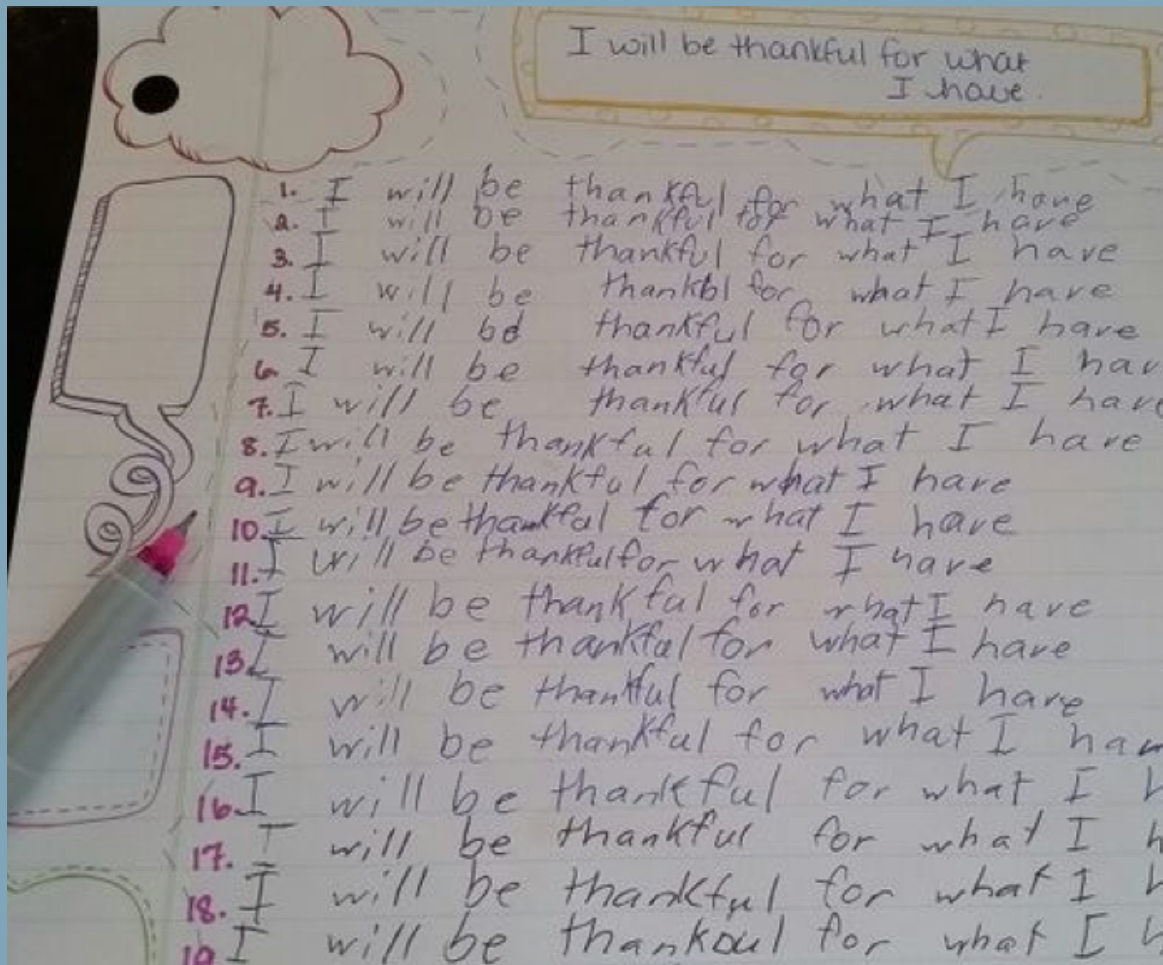 I will be thankful for what
I have.
1. I will be thankful for what I have
2. I will be thankful for what I have
3. I will be thankful for what I have
4. I will be thankbl for what I have
5. I will bd thankful for what I have
6. I will be thankful for what I hav
7. I will be thankful for what I have
8. I will be thankful for what I have
9. I will be thankful for what I have
10. I will be thankful for what I have
11. I will be thankful for what I have
12. I will be thankful for what I have
13. I will be thankful for what I have
14. I will be thankful for what I have
15. I will be thankful for what I hav
16. I will be thankful for what I h
17. I will be thankful for what I h
18. I will be thankful for what I h
19 I will be for what I h